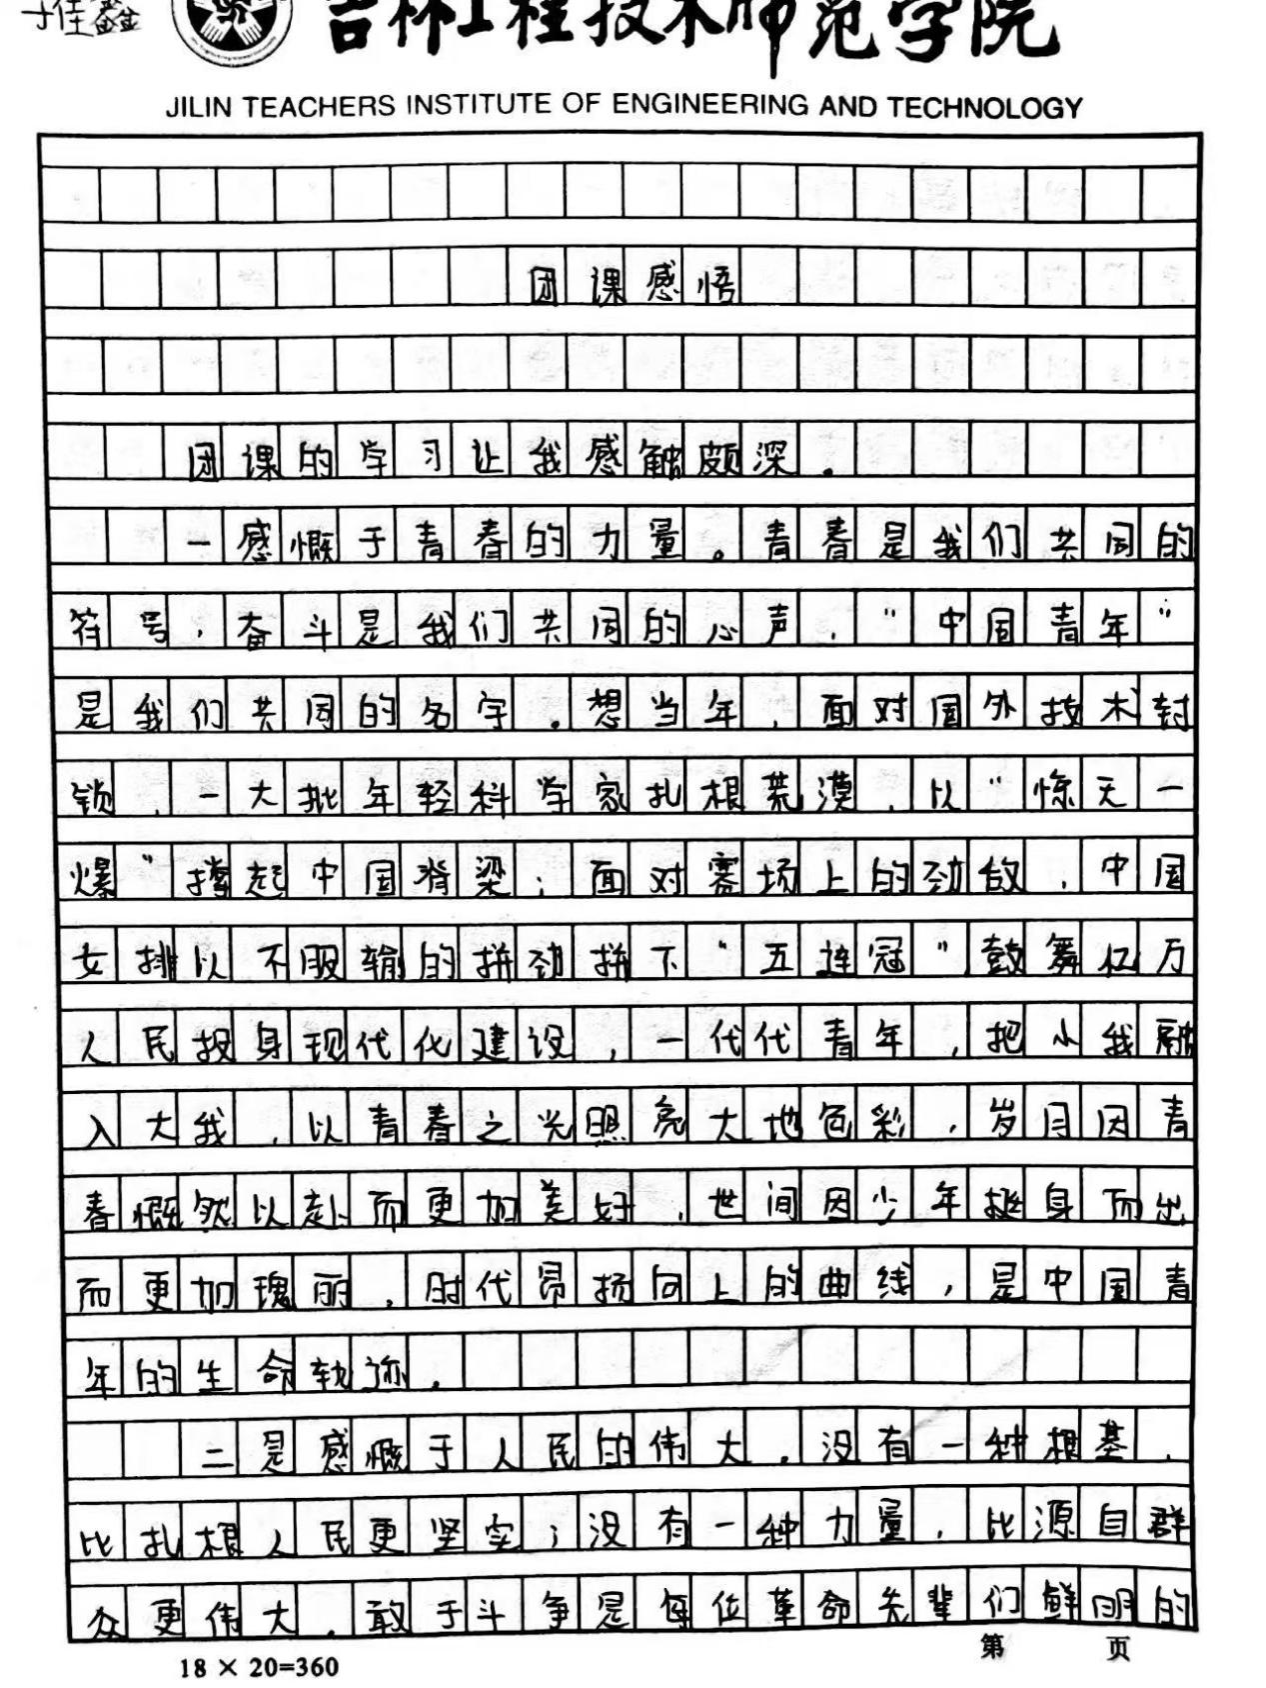 于佳鑫
吉林工程技术师范学院
JILIN TEACHERS INSTITUTE OF ENGINEERING AND TECHNOLOGY
团课感悟
团课的学习让我感触颇深。
一感慨于青春的力量。青春是我们共同的
符号，奋斗是我们共同的心声，“中国青年”
是我们共同的名字。想当年，面对国外技术封
锁，一大批年轻科学家扎根荒漠，以“惊天一
爆”撑起中国脊梁；面对赛场上的劲敌，中国
女排以不服输的拼劲拼下“五连冠”鼓舞亿万
人民投身现代化建设，一代代青年，把小我融
入大我，以青春之光照亮大地色彩，岁月因青
春慨然以赴而更加美好，世间因少年挺身而出
而更加瑰丽，时代昂扬向上的曲线，是中国青
年的生命轨迹。
二是感慨于人民的伟大。没有一种根基，
比扎根人民更坚实；没有一种力量，比源自群
众更伟大。敢于斗争是每位革命先辈们鲜明的
第 页
18 × 20=360